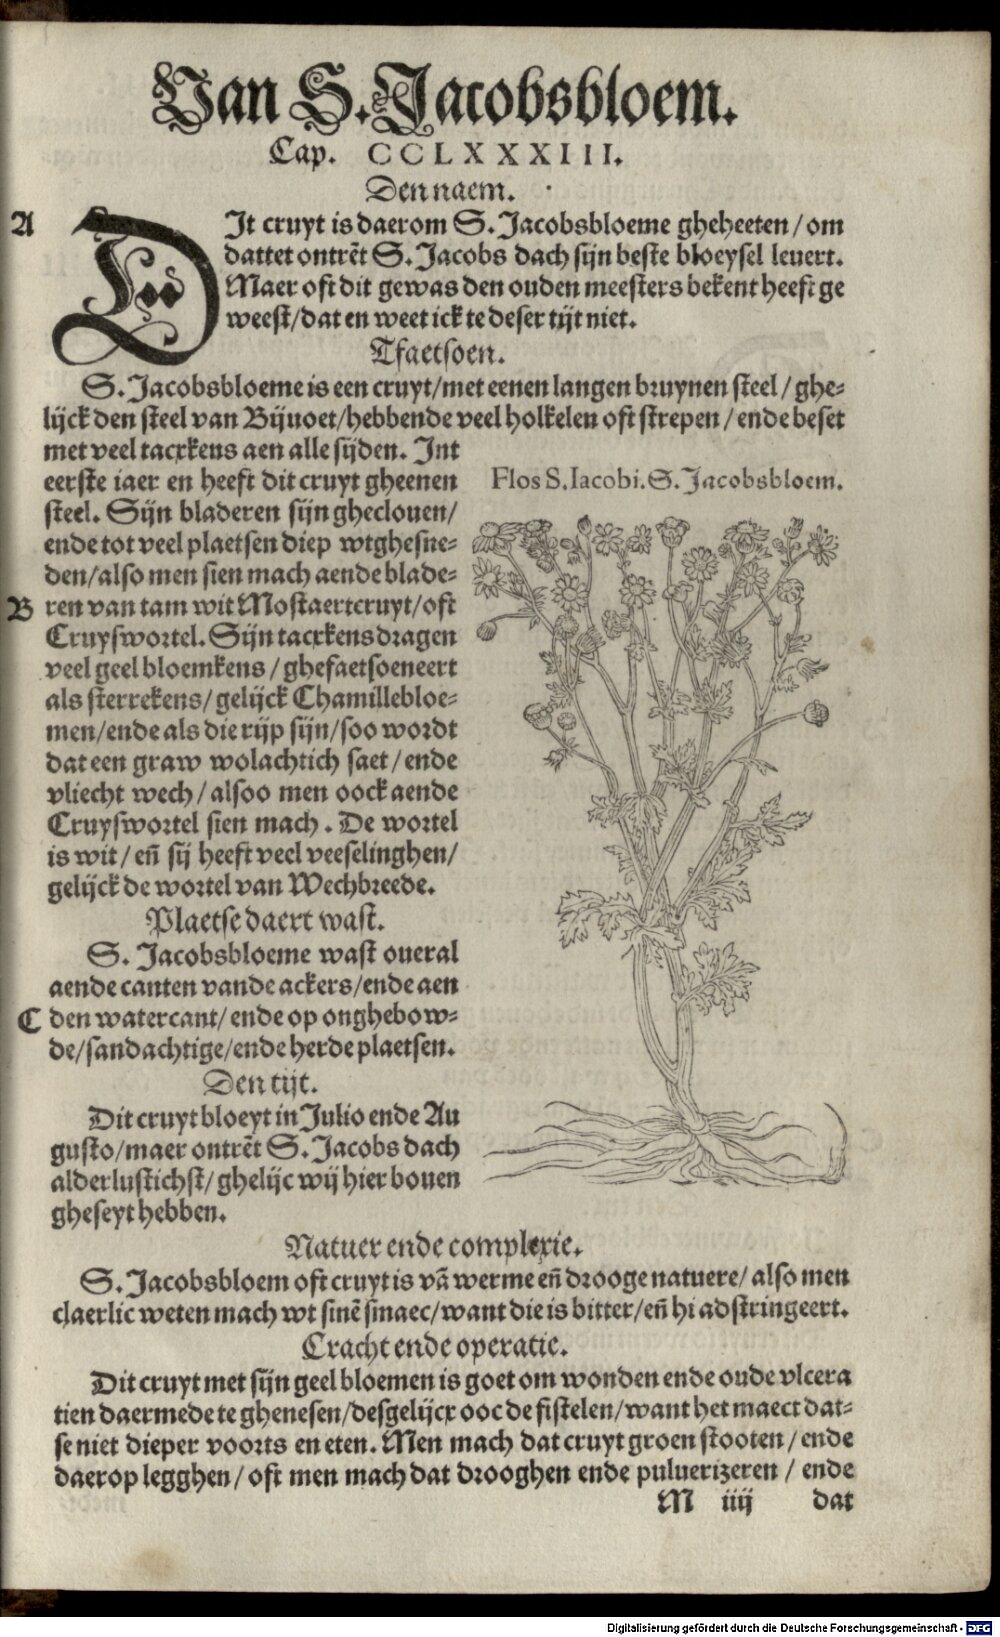 Van S. Jacobsbloem.
Cap. CCLXXXIII.
Den naem.
A
DIt cruyt is daerom S. Jacobsbloeme gheheeten / om
dattet ontrēt S. Jacobs dach sijn beste bloeysel leuert.
Maer oft dit gewas den ouden meesters bekent heeft ge
weest/dat en weet ick te deser tijt niet.
Tfaetsoen.
S. Jacobsbloeme is een cruyt/met eenen langen bruynen steel / ghe-
lijck den steel van Bijuoet/hebbende veel holkelen oft strepen / ende beset
met veel tacxkens aen alle sijden. Int
eerste iaer en heeft dit cruyt gheenen
steel. Sijn bladeren sijn gheclouen/
ende tot veel plaetsen diep wtghesne-
den/also men sien mach aende blade-
B
ren van tam wit Mostaertcruyt/oft
Cruyswortel. Sijn tacxkens dragen
veel geel bloemkens / ghefaetsoeneert
als sterrekens/gelijck Chamillebloe-
men/ende als die rijp sijn/soo wordt
dat een graw wolachtich saet / ende
vliecht wech / alsoo men oock aende
Cruyswortel sien mach . De wortel
is wit / eñ sij heeft veel veeselinghen/
gelijck de wortel van Wechbreede.
Flos S. Iacobi. S. Jacobsbloem.
Plaetse daert wast.
S. Jacobsbloeme wast oueral
aende canten vande ackers/ende aen
C
den watercant/ ende op onghebow-
de/sandachtige/ende herde plaetsen.
Den tijt.
Dit cruyt bloeyt in Julio ende Au
gusto/maer ontrēt S. Jacobs dach
alderlustichst/ ghelijc wij hier bouen
gheseyt hebben.
Natuer ende complexie.
S. Jacobsbloem oft cruyt is vā werme eñ drooge natuere/ also men
claerlic weten mach wt sinē smaec/want die is bitter/eñ hi adstringeert.
Cracht ende operatie.
Dit cruyt met sijn geel bloemen is goet om wonden ende oude vlcera
tien daermede te ghenesen/desgelijcx ooc de fistelen/want het maect dat-
se niet dieper voorts en eten. Men mach dat cruyt groen stooten / ende
daerop legghen/ oft men mach dat drooghen ende puluerizeren / ende
M iiij dat
Digitalisierung gefördert durch die Deutsche Forschungsgemeinschaft - DFG